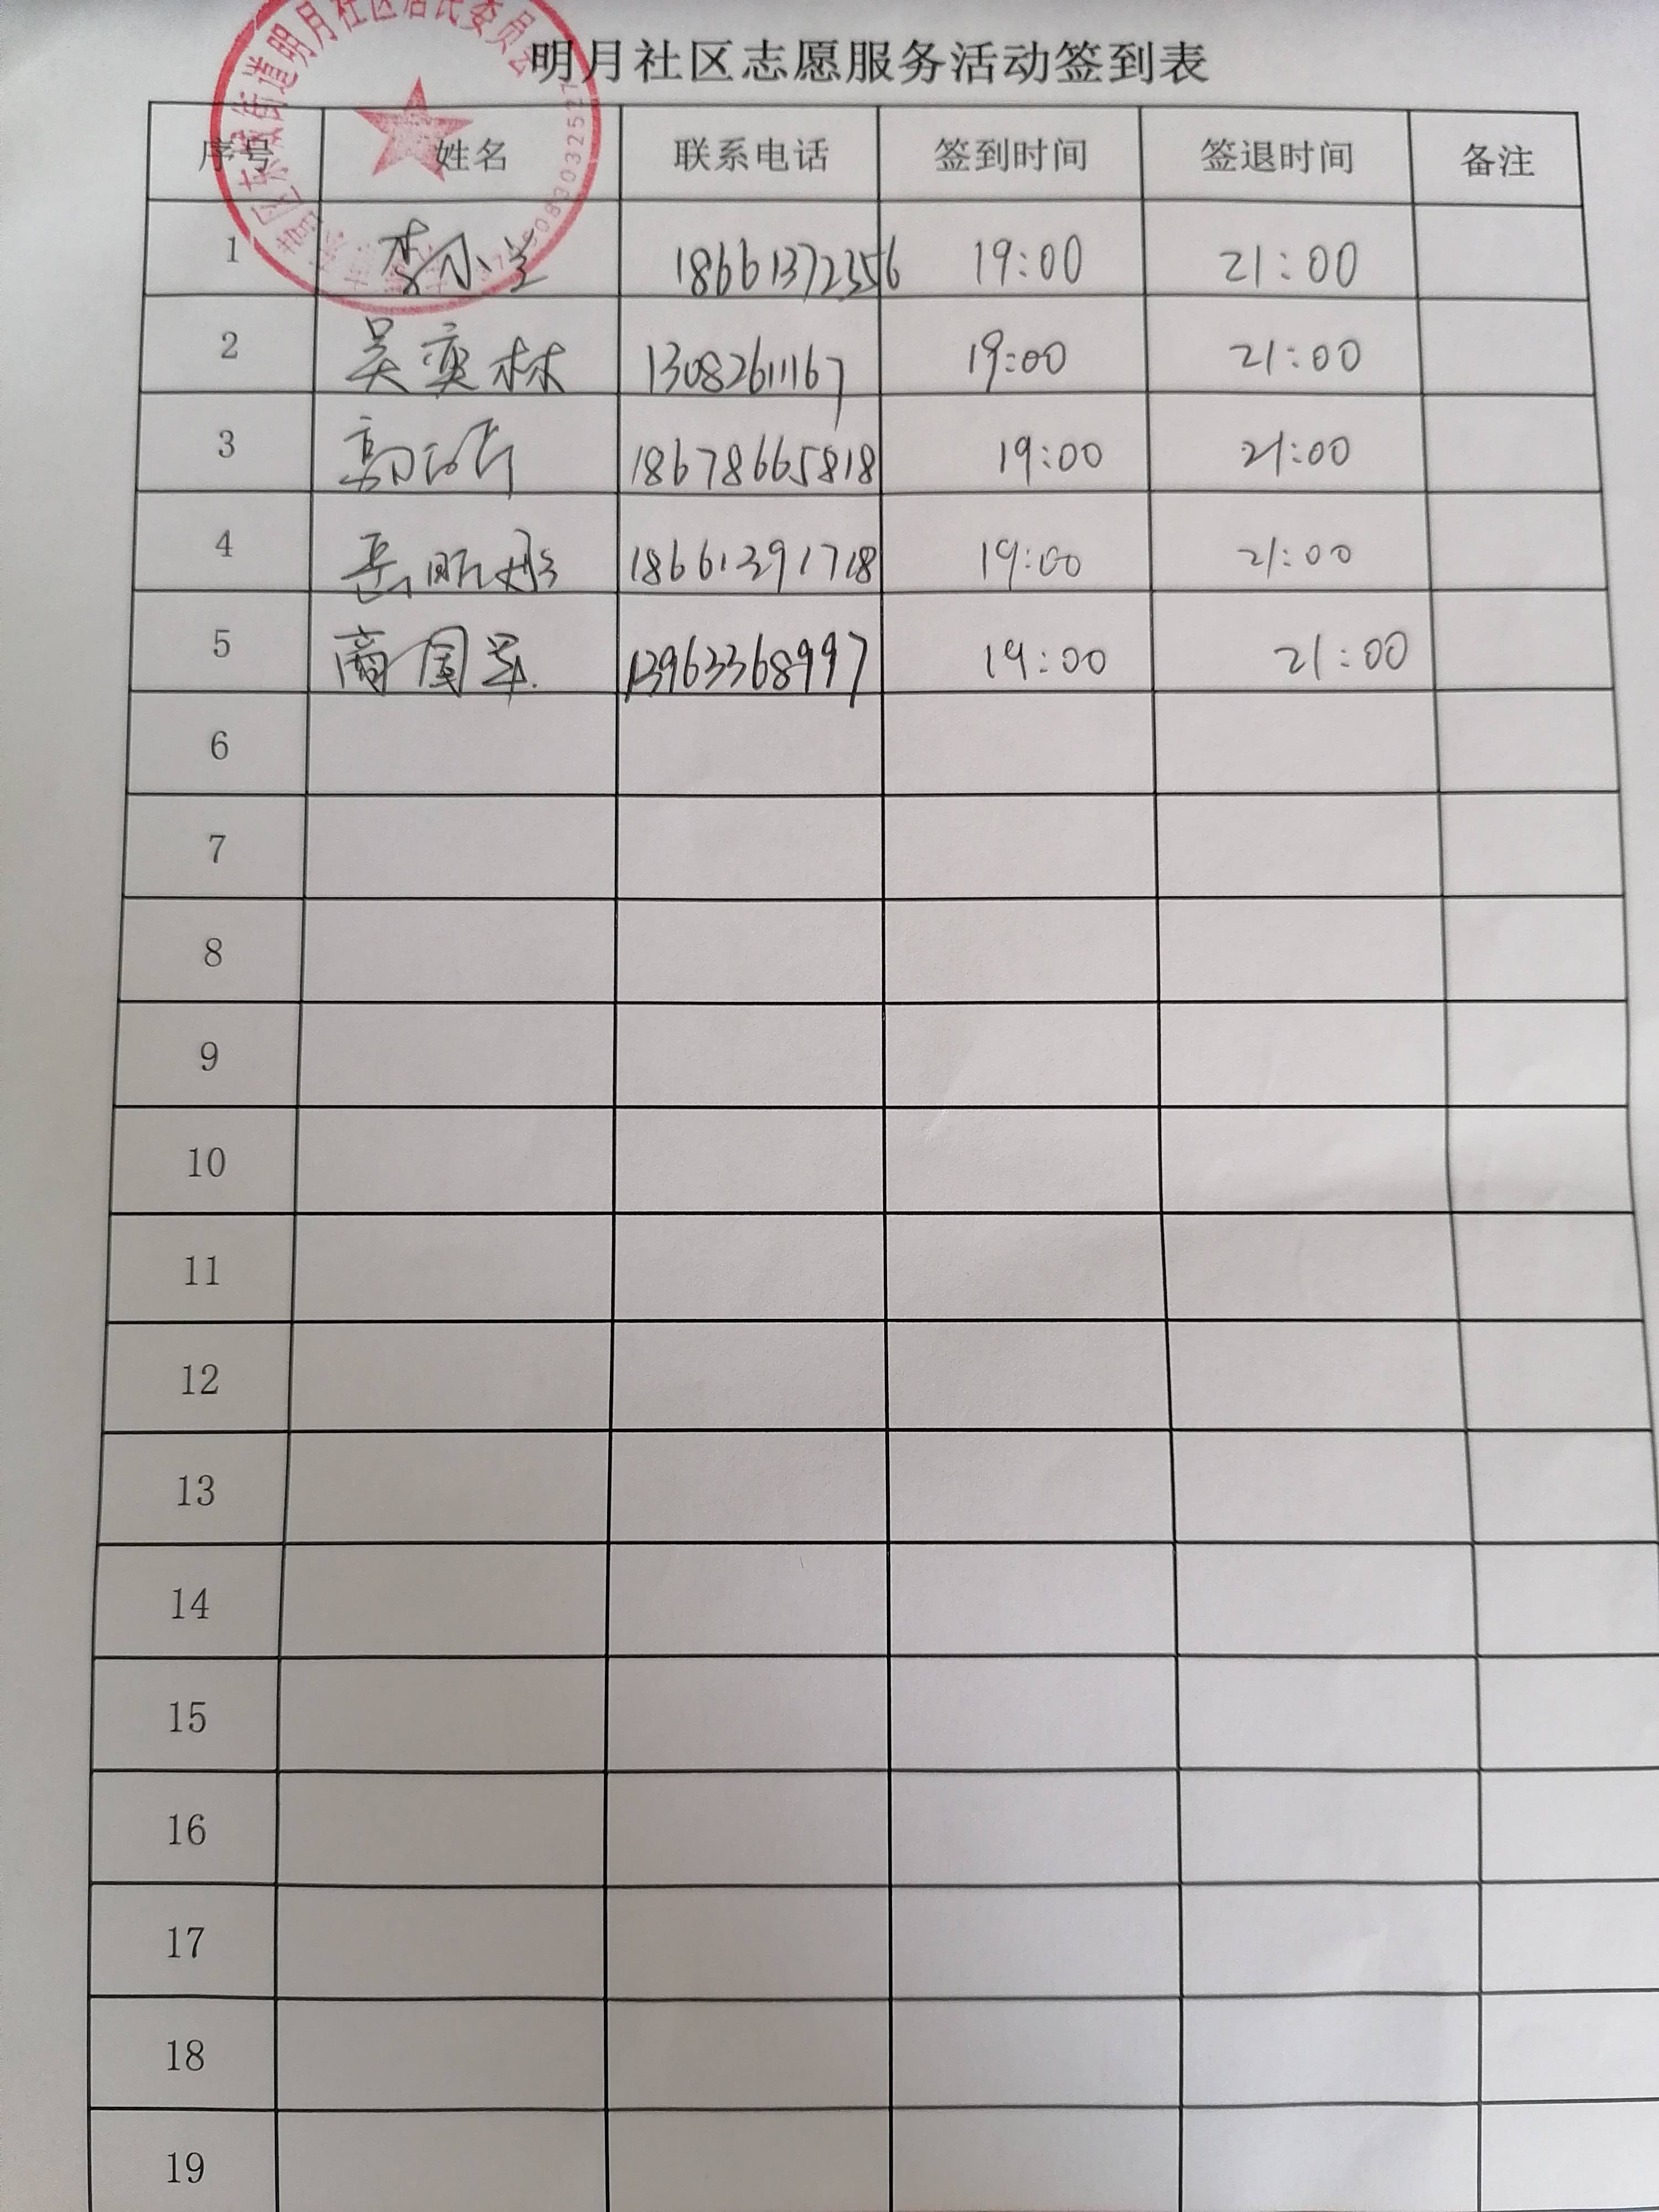 明月社区志愿服务活动签到表
街道明月社区居民委员会
序号 姓名 联系电话 签到时间 签退时间 备注
1 李小兰 18661372356 19:00 21:00
2 吴奕林 13082611167 19:00 21:00
3 18678665818 19:00 21:00
4 岳 彤 18661391718 19:00 21:00
5 商国军 13963368997 19:00 21:00
6
7
8
9
10
11
12
13
14
15
16
17
18
19